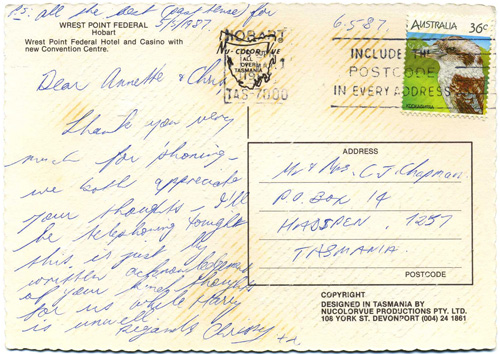 P.S. all the best (past tense) for
5/5/1987.
6.5.87
WREST POINT FEDERAL
Hobart
Wrest Point Federal Hotel and Casino with
new Convention Centre.
HOBART
NU-COLOR-VUE
ALL
OVER
TASMANIA
TAS-7000
INCLUDE THE
POSTCODE
IN EVERY ADDRESS
AUSTRALIA 36c
KOOKABURRA
Dear Annette & Chris
Thank you very
much for 'phoning -
we both appreciate
your thoughts - I'll
be telephoning tonight
this is just my
written acknowledgement
of your kind thoughts
for us while Harry
is unwell.
Regards
ADDRESS
Mr & Mrs. C. J. Chapman.
P.O. BOX 14
HADSPEN. 7257
TASMANIA.
POSTCODE
COPYRIGHT
DESIGNED IN TASMANIA BY
NUCOLORVUE PRODUCTIONS PTY. LTD.
106 YORK ST. DEVONPORT (004) 24 1861